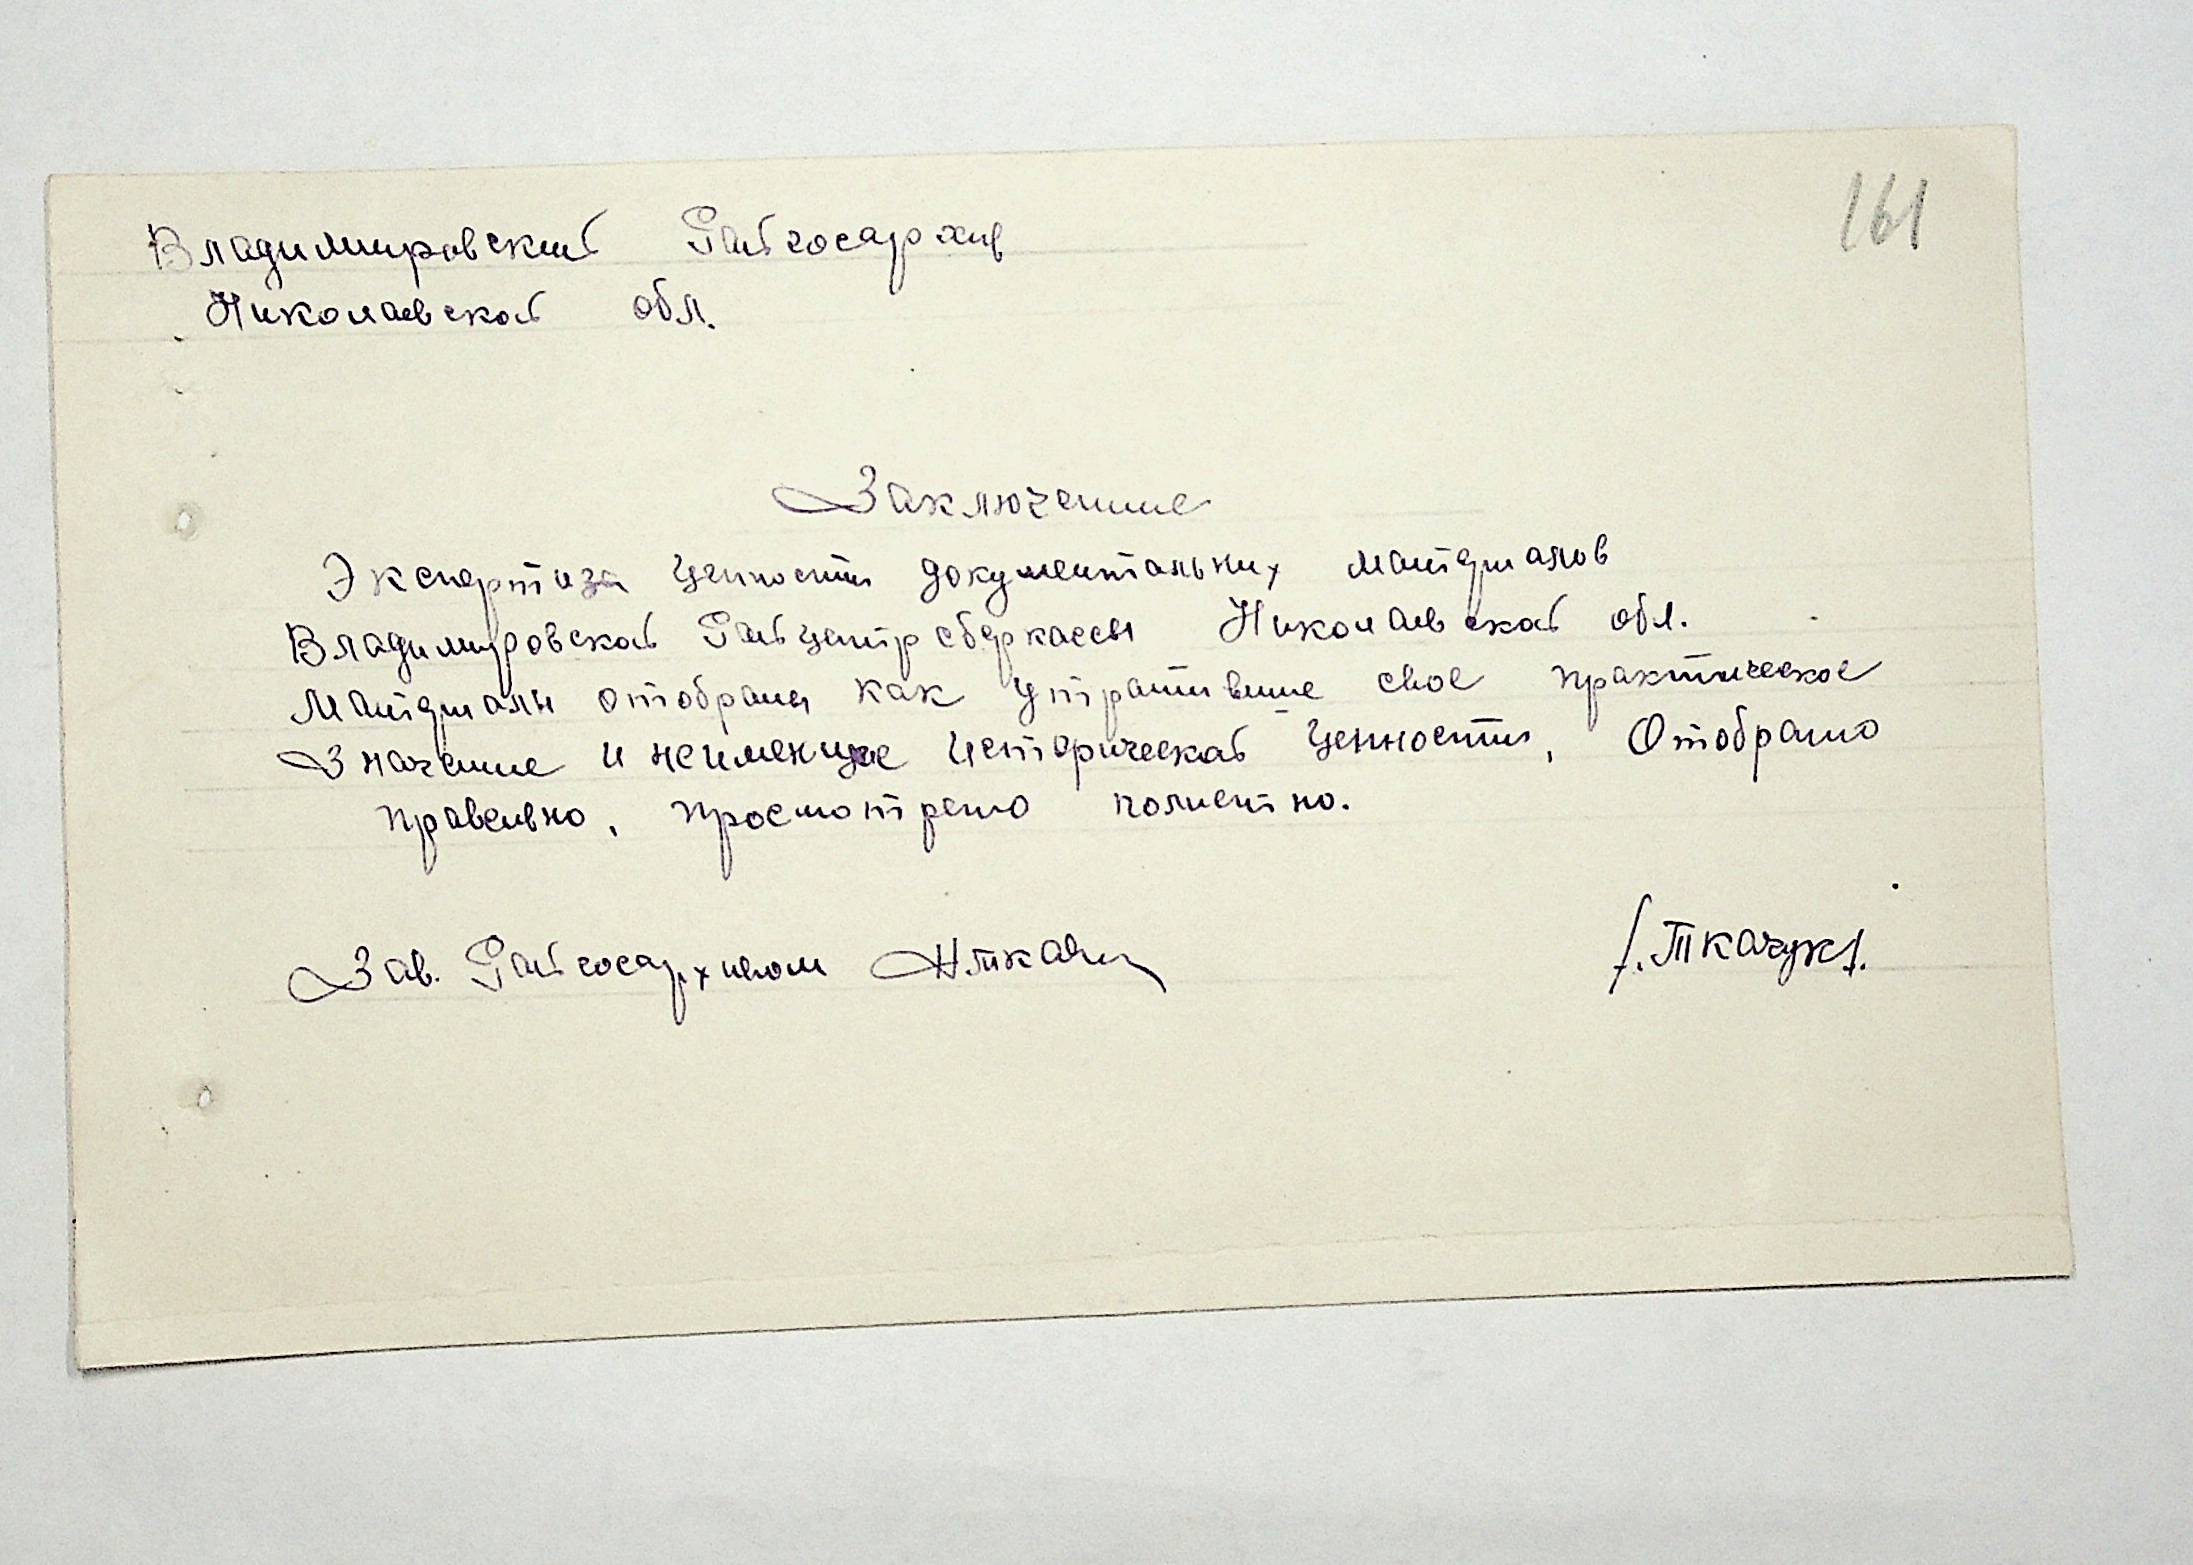 161
Владимировский Райгосархив
Николаевской обл.
Заключение
Экспертиза ценности документальных материалов
Владимировской Райцентрсберкассы Николаевской обл.
Материалы отобраны как утратившие свое практическое
значение и неимеющие исторической ценности, Отобрано
правельно, просмотрено полистно.
Зав. Райгосархивом
/.Ткачук/.